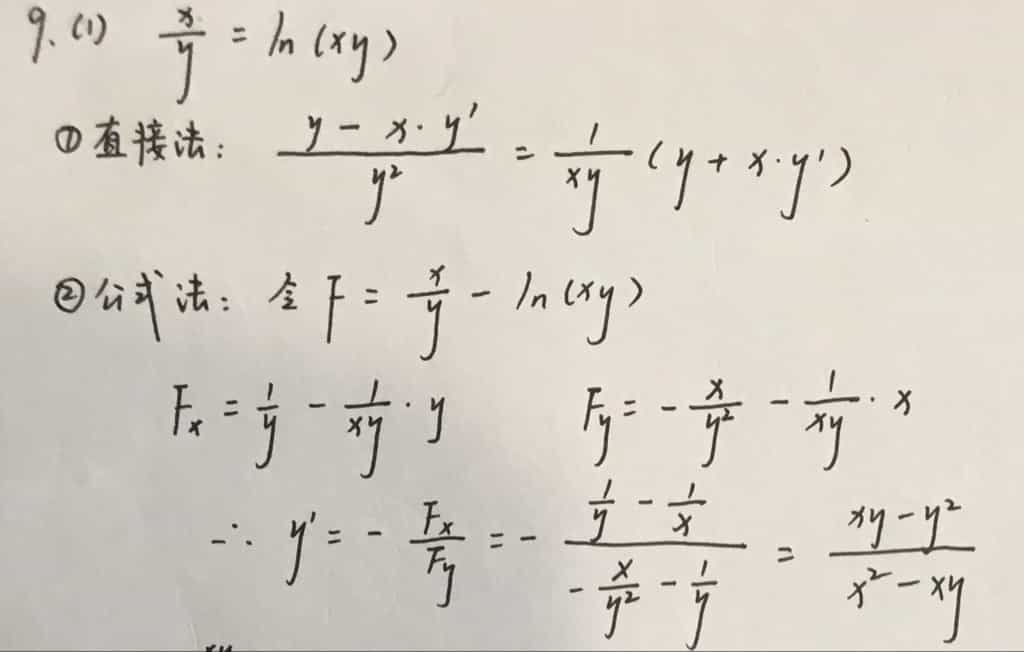 9. (1) x/y = ln(xy)
①直接法: (y - x·y')/y² = 1/(xy) (y + x·y')
②公式法: 令 F = x/y - ln(xy)
Fₓ = 1/y - 1/(xy) · y  F_y = - x/y² - 1/(xy) · x
∴ y' = - Fₓ/F_y = - (1/y - 1/x)/(- x/y² - 1/y) = (xy - y²)/(x² - xy)